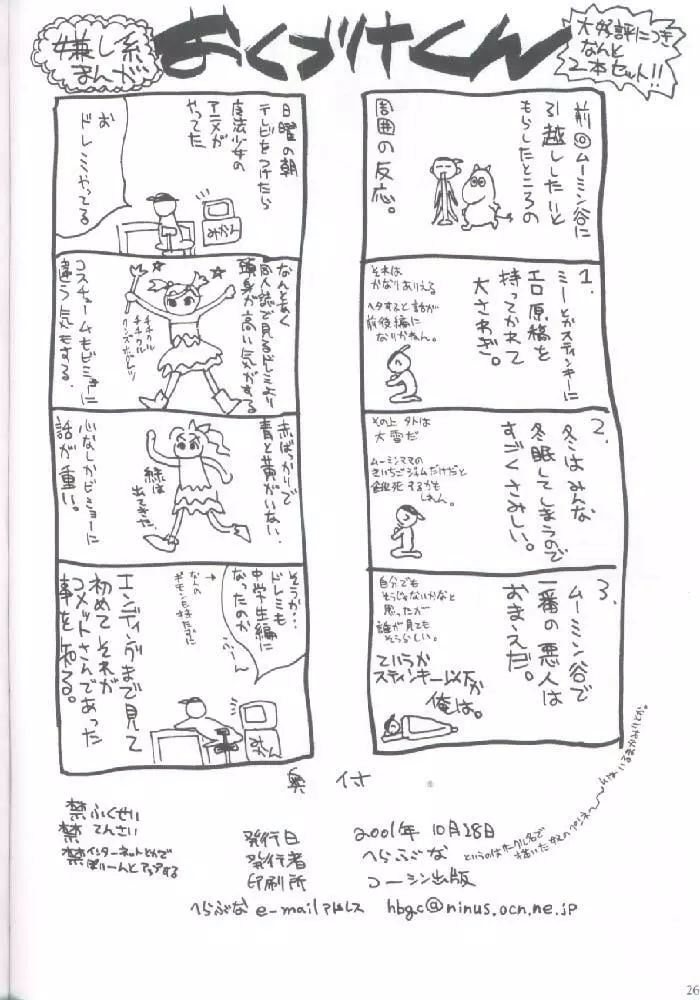 嫌し系
まんが
おくづけくん
大好評につき
なんと
2本セット!!
前回ムーミン谷に
引越ししたいと
もらしたところの
周囲の反応。
1.
ミーとかスティンキーに
エロ原稿を
持ってかれて
大さわぎ。
それは
かなりありえる
ヘタすると話が
前後編に
なりかねん。
2.
冬はみんな
冬眠してしまうので
すごくさみしい。
その上外は
大雪だ
ムーミンママの
きいちごジャムだけだと
餓死するかも
しれん。
3.
ムーミン谷で
一番の悪人は
おまえだ。
自分でも
そうじゃないかなと
思ったが
誰が見ても
そうらしい。
ていうか
スティンキー以下か
俺は。
日曜の朝
テレビをつけたら
魔法少女の
アニメが
やってた
お
ドレミやってる
みかん
なんとなく
同人誌で見るドレミより
頭身が高い気がする
コスチュームもビミョーに
違う気もする。
赤ばっかりで
青と黄がいない。
心なしかビミョーに
話が重い。
緑は
出てきた
そうか…
ドレミも
中学生編に
なったのか
ふーん
エンディングまで見て
初めてそれが
コメットさんであった
事を知る。
みかん
奥付
禁ふくせい
禁てんさい
禁インターネットとかで
ぽりーんとアップする
発行日 2001年 10月28日
発行者 へらぶな
印刷所 コーシン出版
へらぶな e-mailアドレス hbgc@ninus.ocn.ne.jp
26